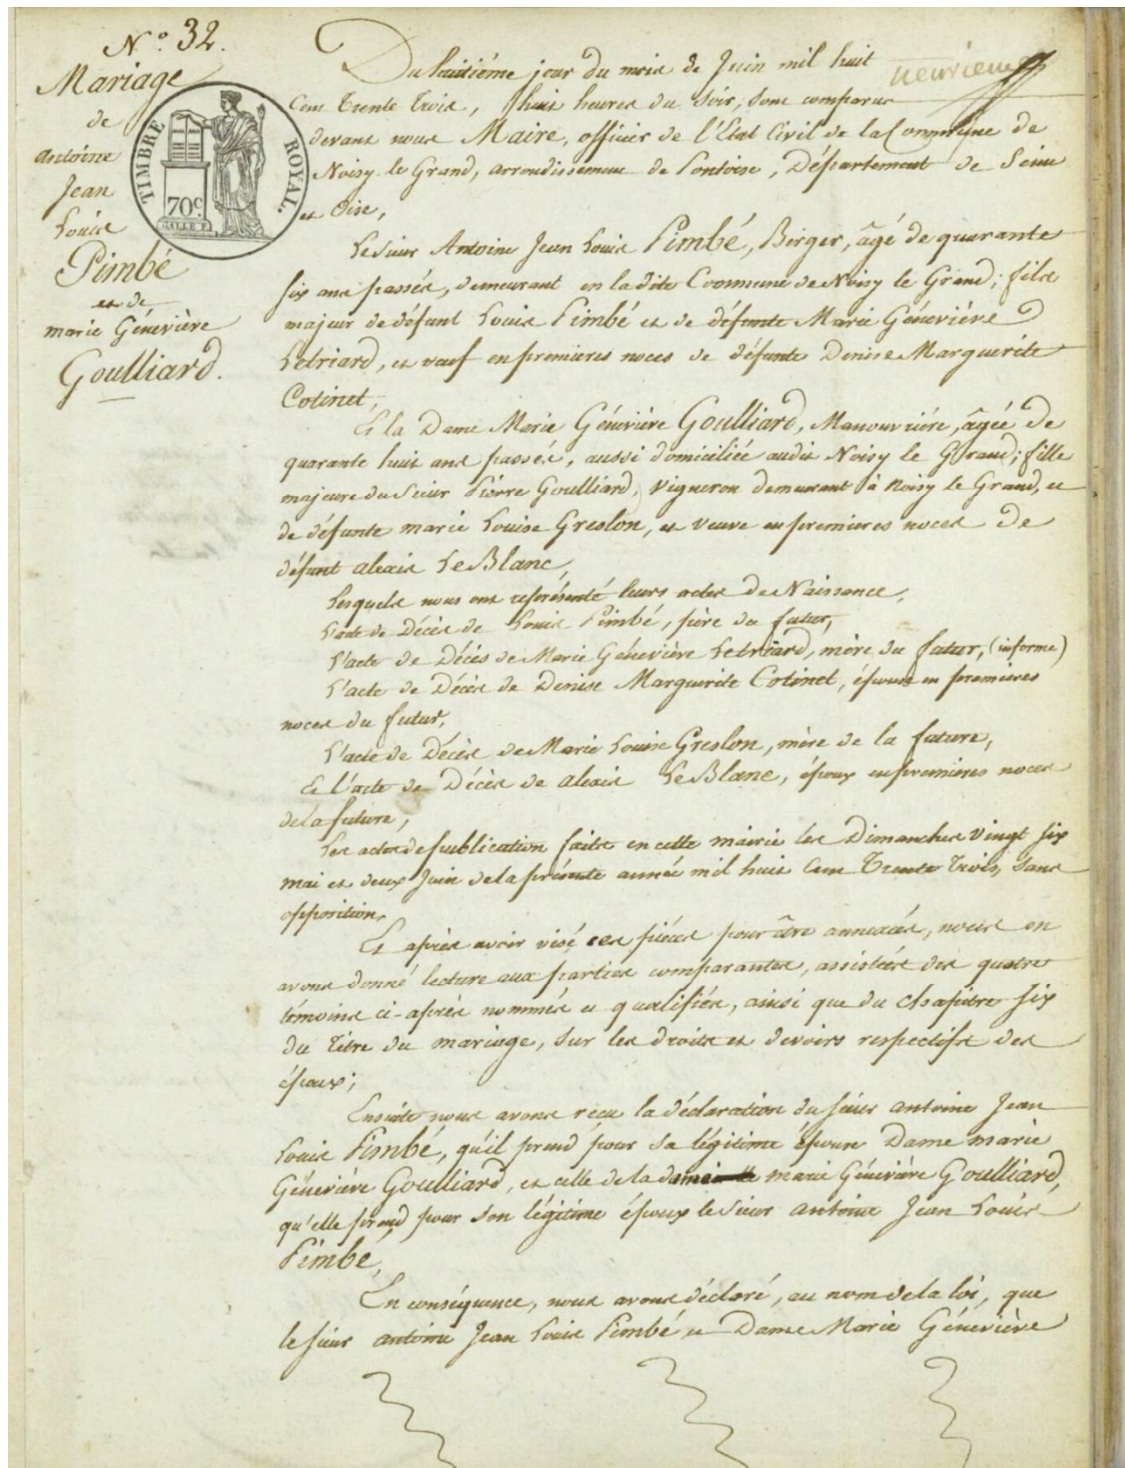 N.° 32.
Mariage
de
Antoine
Jean
Louis
Pimbé
et de
marie Génevière
Goulliard.
TIMBRE ROYAL.
70c
neuvième
Du huitiéme jour du mois de Juin mil huit
Cent Trente Trois, huit heures du Soir, Sont comparus
devant nous Maire, officier de l'Etat Civil de la Commune de
Noisy le Grand, arrondissement de Pontoise, Département de Seine
et Oise,
Le Sieur Antoine Jean Louis Pimbé, Berger, âgé de quarante
six ans passés, demeurant en la dite Commune de Noisy le Grand; fils
majeur de défunt Louis Pimbé et de défunte Marie Génevière
Letriard, et veuf en premieres noces de défunte Denise Marguerite
Cotinet,
Et la Dame Marie Génevière Goulliard, Manouvriére, âgée de
quarante huit ans passés, aussi domiciliée audit Noisy le Grand; fille
majeure du Sieur Piérre Goulliard, Vigneron demeurant à Noisy le Grand, et
de défunte marie Louise Greslon, et veuve en premieres noces de
défunt alexis LeBlanc,
Lesquels nous ont représenté leurs actes de Naissance,
L'acte de Décès de Louis Pimbé, père du futur,
L'acte de Décès de Marie Génevière Letriard, mère du futur, (informe)
L'acte de Décès de Denise Marguerite Cotinet, épouse en premieres
noces du futur,
L'acte de Décès de Marie Louise Greslon, mère de la future,
Et l'acte de Décès de alexis LeBlanc, époux en premieres noces
de la future,
Les actes de publication faits en cette mairie les Dimanches Vingt six
mai et deux Juin de la présente année mil huit Cent Trente Trois, Sans
opposition,
Et après avoir visé ces pièces pour être annexées, nous en
avons donné lecture aux parties comparantes, assistées des quatre
témoins ci-après nommés et qualifiés, ainsi que du chapitre six
du titre du mariage, Sur les droits et devoirs respectifs des
époux;
Ensuite nous avons reçu la déclaration du Sieur antoine Jean
Louis Pimbé, qu'il prend pour Sa légitime épouse Dame marie
Génevière Goulliard, et celle de la dame marie Génevière Goulliard,
qu'elle prend pour Son légitime époux le Sieur antoine Jean Louis
Pimbé,
En conséquence, nous avons déclaré, au nom de la loi, que
le Sieur antoine Jean Louis Pimbé et Dame Marie Génevière